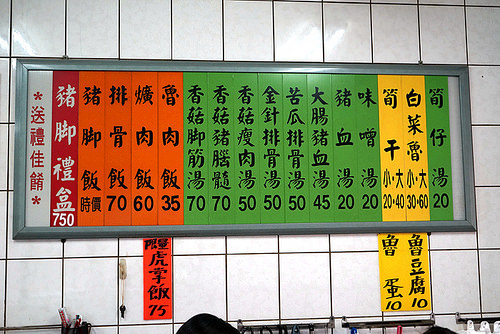 *送禮佳餚*
豬脚禮盒 750
豬脚飯 時價
排骨飯 70
爌肉飯 60
魯肉飯 35
香菇脚筋湯 70
香菇豬腦髓湯 70
香菇瘦肉湯 50
金針排骨湯 50
苦瓜排骨湯 50
大腸豬血湯 45
豬血湯 20
味噌湯 20
筍干 小·大 20·40
白菜魯 小·大 30·60
筍仔湯 20
虎掌飯 75
魯蛋 10
魯豆腐 10